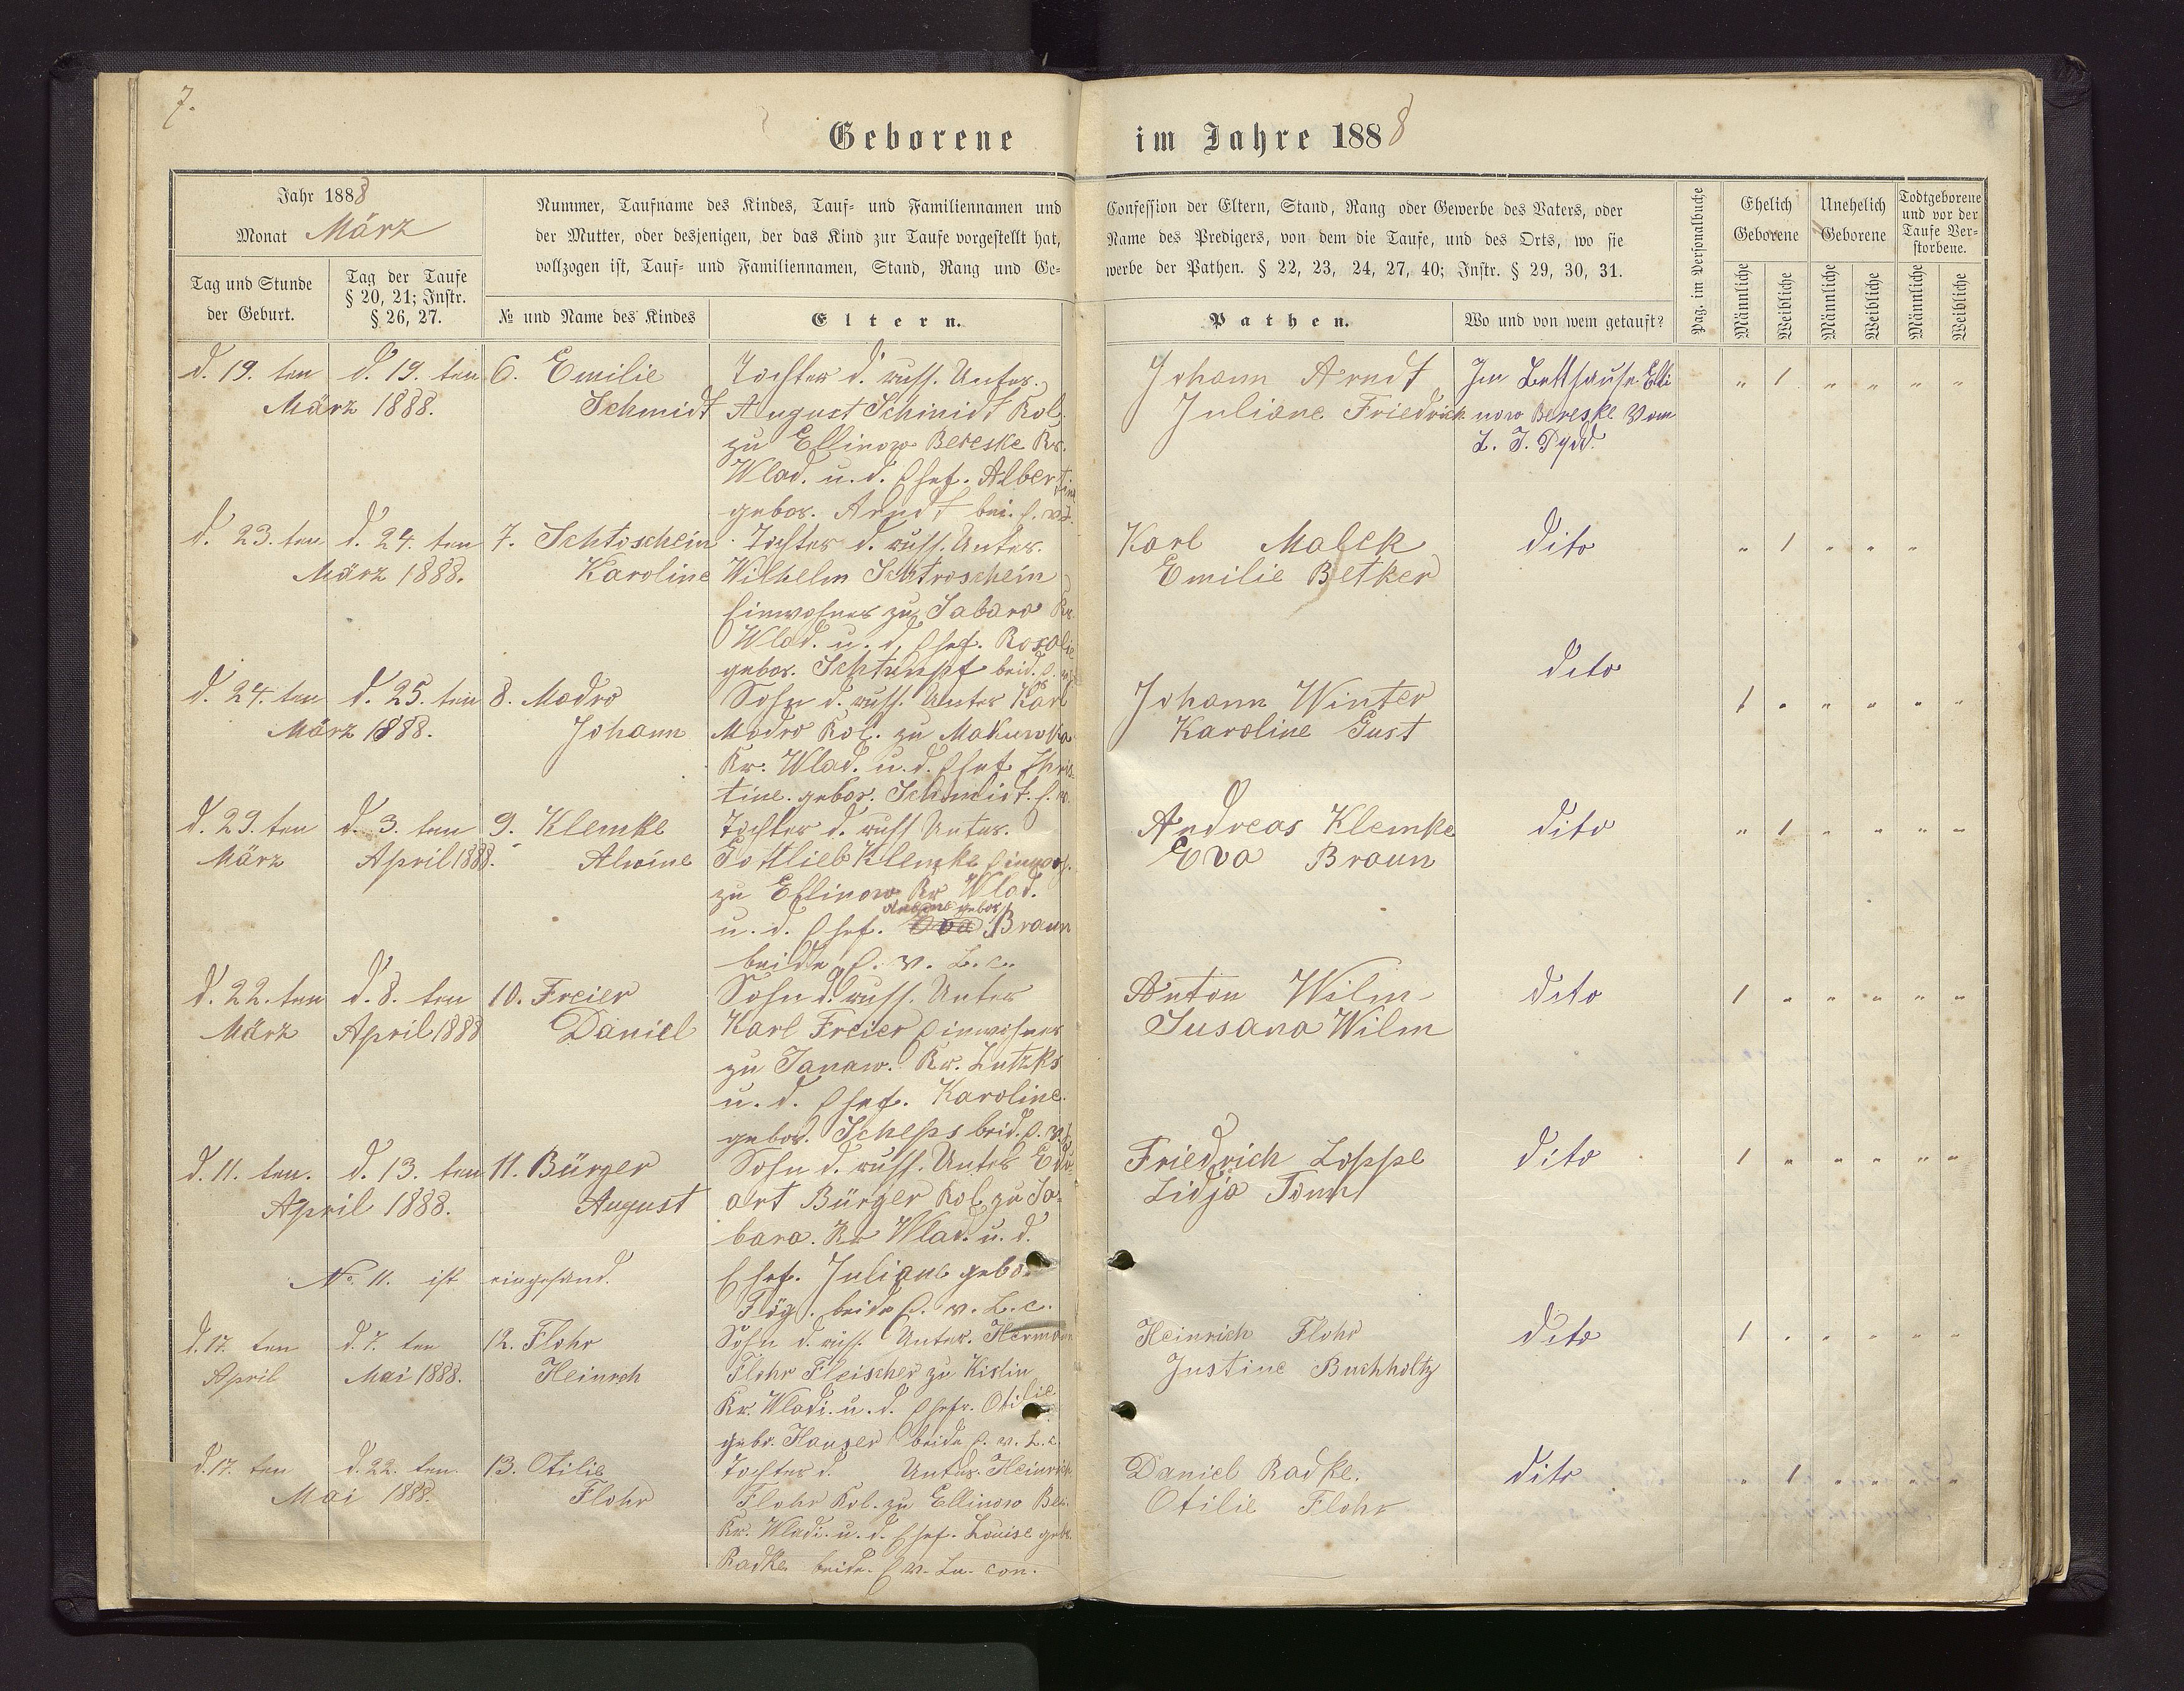 7.
Geborene im Jahre 1888
Jahr 1888
Monat März
Tag und Stunde der Geburt.
Tag der Taufe § 20, 21; Instr. § 26, 27.
Nummer, Taufname des Kindes, Tauf- und Familiennamen und
der Mutter, oder desjenigen, der das Kind zur Taufe vorgestellt hat,
vollzogen ist, Tauf- und Familiennamen, Stand, Rang und Ge-
№ und Name des Kindes
Eltern.
Confession der Eltern, Stand, Rang oder Gewerbe des Vaters, oder
Name des Predigers, von dem die Taufe, und des Orts, wo sie
werbe der Pathen. § 22, 23, 24, 27, 40; Instr. § 29, 30, 31.
Pathen.
Wo und von wem getauft?
Pag. im Personalbuche
Ehelich Geborene
Unehelich Geborene
Todtgeborene und vor der Taufe Verstorbene.
Männliche
Weibliche
Männliche
Weibliche
Männliche
Weibliche
d. 19. ten d. 19. ten
März 1888.
6. Emilie
Schmidt
Tochter d. russ. Unter.
August Schmidt Kol.
zu Ellinow Bereske Kr.
Wlad. u. d. Ehef. Albertine
gebor. Arndt bei. E. v. L.
Johann Arndt
Juliane Friedrich
Im Betthause Elli
now Bereske Vom
L. J. Dydd.
" 1 " " " "
d. 23. ten d. 24. ten
März 1888.
7. Schtoschein
Karoline
Tochter d. russ. Unter.
Wilhelm Schtroschein
Einwohner zu Sabara Kr.
Wlad. u. d. Ehef. Rosalie
gebor. Schtumpf beid. E. v.
Karl Malek
Emilie Betker
dito
" 1 " " "
d. 24. ten d. 25. ten
März 1888.
8. Modro
Johann
Sohn d. russ. Unter Karl
Modro Kol. zu Makuwka
Kr. Wlad. u. d. Ehef Chris-
tine. gebor. Schmidt. E. v.
Johann Winter
Karoline Gust
dito
1 " " " " "
d. 29. ten d. 3. ten
März April 1888.
9. Klemke
Alwine
Tochter d. russ Unter.
Gottlieb Klemke Einwoh.
zu Ellinow Kr Wlad.
u. d. Ehef. Eva gebor. Braun
beide E. v. L. c.
Andreas Klemke
Eva Braun
dito
" 1 " " " "
d. 22. ten d. 8. ten
März April 1888
10. Freier
Daniel
Sohn d. russ. Unter
Karl Freier Einwohner
zu Janaw. Kr. Lutzks
u. d. Ehef. Karoline.
gebor. Scheps beid. E. v. L.
Anton Wilm
Susana Wilm
dito
1 " " " " "
d. 11. ten. d. 13. ten
April 1888.
11. Bürger
August
Sohn d. russ. Unter Edu-
art Bürger Kol. zu Sa-
bara. Kr Wlad. u. d.
Ehef. Juliane gebor
Föge. beide E. v. L. c.
Friedrich Loppe
Lidja Tonn
dito
1 " " " " "
No. 11. ist eingesand.
d. 17. ten d. 7. ten
April Mai 1888.
12. Flohr
Heinrch
Sohn d. russ. Unter. Hermann
Flohr Fleischer zu Kislin
Kr. Wladi. u. d. Ehefr. Otilie
gebr. Hauser beide E. v. L. c.
Heinrich Flohr
Justine Buchholtz
dito
1 " " " " "
d. 17. ten d. 22. ten.
Mai 1888.
13. Otilie
Flohr
Tochter d. Unter. Heinrich
Flohr Kol. zu Ellinow Ber.
Kr. Wladi. u. d. Ehef. Louise gebr.
Radke beide. E v. Lu. con.
Daniel Radke.
Otilie Flohr
dito
" 1 " " " "